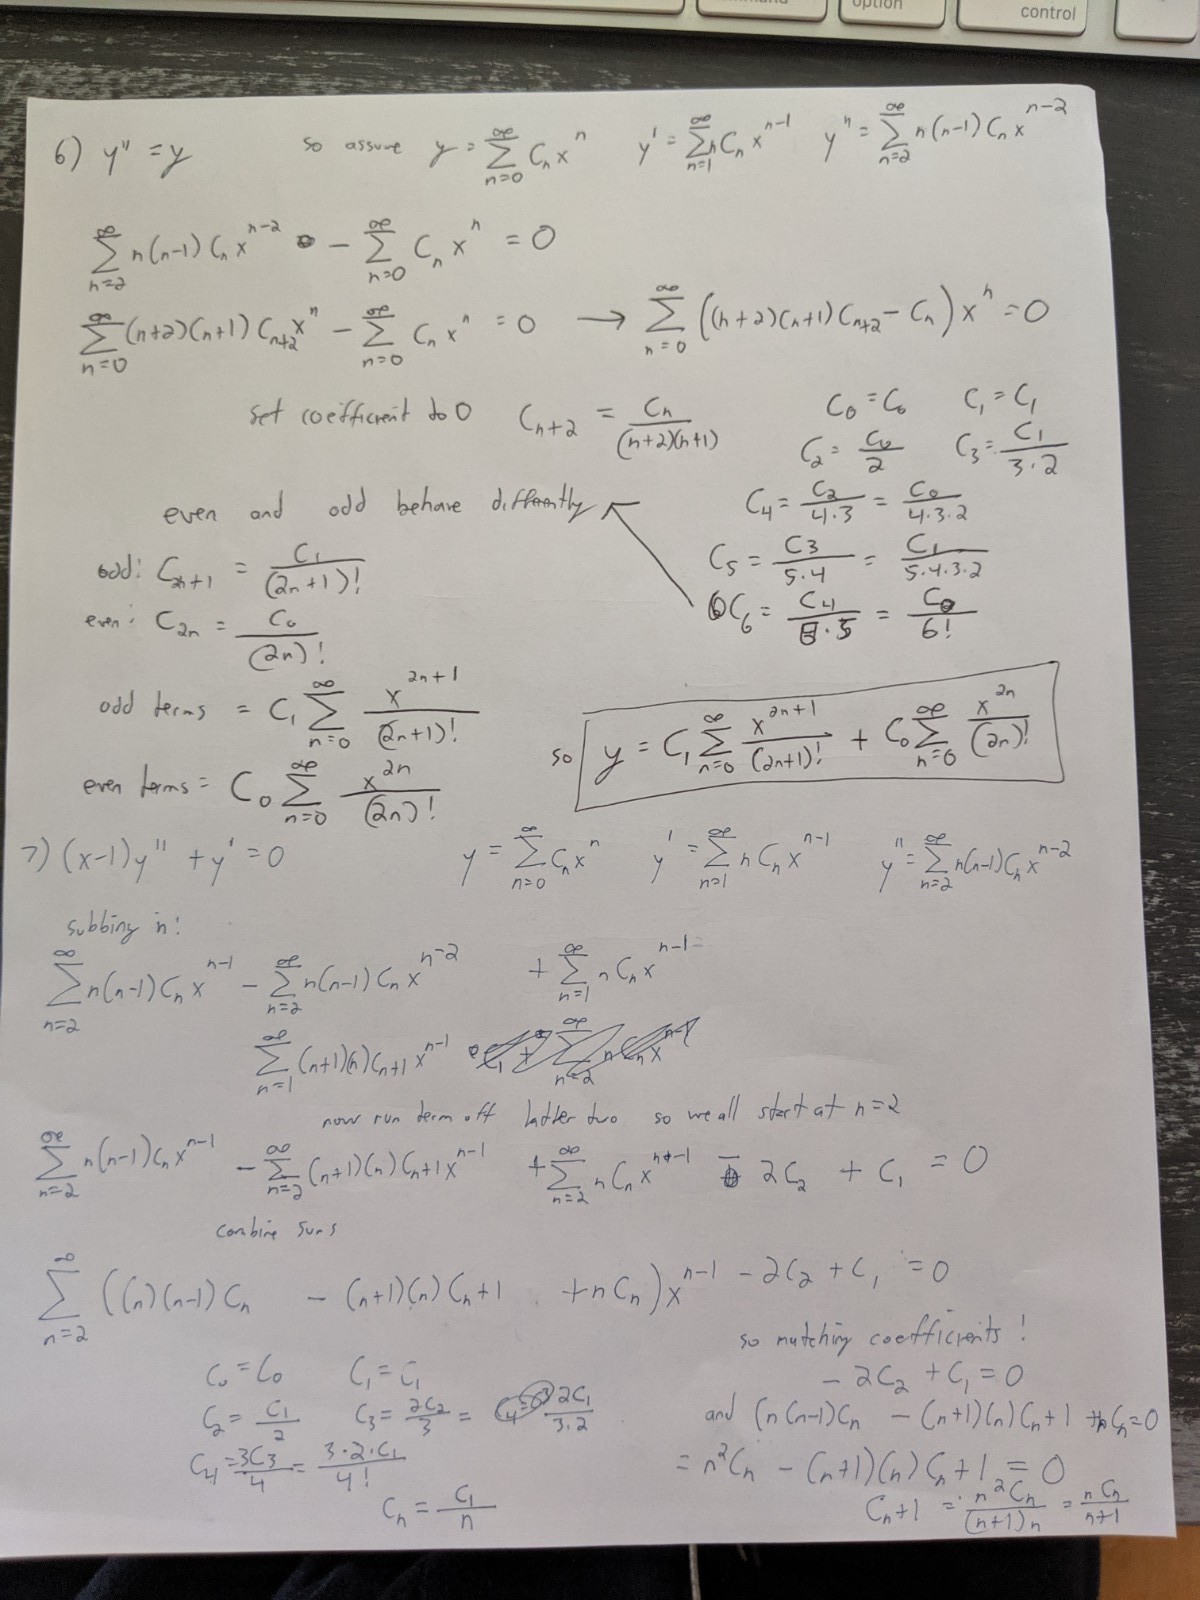 command option control
6) y'' = y so assume y = ∑_{n=0}^{∞} C_n x^n y' = ∑_{n=1}^{∞} n C_n x^{n-1} y'' = ∑_{n=2}^{∞} n(n-1) C_n x^{n-2}
∑_{n=2}^{∞} n(n-1) C_n x^{n-2} - ∑_{n=0}^{∞} C_n x^n = 0
∑_{n=0}^{∞} (n+2)(n+1) C_{n+2} x^n - ∑_{n=0}^{∞} C_n x^n = 0 → ∑_{n=0}^{∞} ((n+2)(n+1) C_{n+2} - C_n) x^n = 0
set coefficient to 0 C_{n+2} = C_n / (n+2)(n+1)
C_0 = C_0 C_1 = C_1
C_2 = C_0 / 2 C_3 = C_1 / 3·2
C_4 = C_2 / 4·3 = C_0 / 4·3·2
C_5 = C_3 / 5·4 = C_1 / 5·4·3·2
C_6 = C_4 / 6·5 = C_0 / 6!
even and odd behave differently
odd: C_{2n+1} = C_1 / (2n+1)!
even: C_{2n} = C_0 / (2n)!
odd terms = C_1 ∑_{n=0}^{∞} x^{2n+1} / (2n+1)!
even terms = C_0 ∑_{n=0}^{∞} x^{2n} / (2n)!
so y = C_1 ∑_{n=0}^{∞} x^{2n+1} / (2n+1)! + C_0 ∑_{n=0}^{∞} x^{2n} / (2n)!
7) (x-1)y'' + y' = 0 y = ∑_{n=0}^{∞} C_n x^n y' = ∑_{n=1}^{∞} n C_n x^{n-1} y'' = ∑_{n=2}^{∞} n(n-1) C_n x^{n-2}
subbing in:
∑_{n=2}^{∞} n(n-1) C_n x^{n-1} - ∑_{n=2}^{∞} n(n-1) C_n x^{n-2} + ∑_{n=1}^{∞} n C_n x^{n-1} =
∑_{n=1}^{∞} (n+1)(n) C_{n+1} x^{n-1}
now run term off latter two so we all start at n=2
∑_{n=2}^{∞} n(n-1) C_n x^{n-1} - ∑_{n=2}^{∞} (n+1)(n) C_{n+1} x^{n-1} + ∑_{n=2}^{∞} n C_n x^{n-1} - 2C_2 + C_1 = 0
combine sums
∑_{n=2}^{∞} ((n)(n-1) C_n - (n+1)(n) C_{n+1} + n C_n) x^{n-1} - 2C_2 + C_1 = 0
so matching coefficients!
- 2C_2 + C_1 = 0
and (n(n-1) C_n - (n+1)(n) C_{n+1} + n C_n = 0
= n^2 C_n - (n+1)(n) C_{n+1} = 0
C_{n+1} = n^2 C_n / (n+1)n = n C_n / n+1
C_0 = C_0 C_1 = C_1
C_2 = C_1 / 2 C_3 = 2C_2 / 3 = 2C_1 / 3·2
C_4 = 3C_3 / 4 = 3·2·C_1 / 4!
C_n = C_1 / n